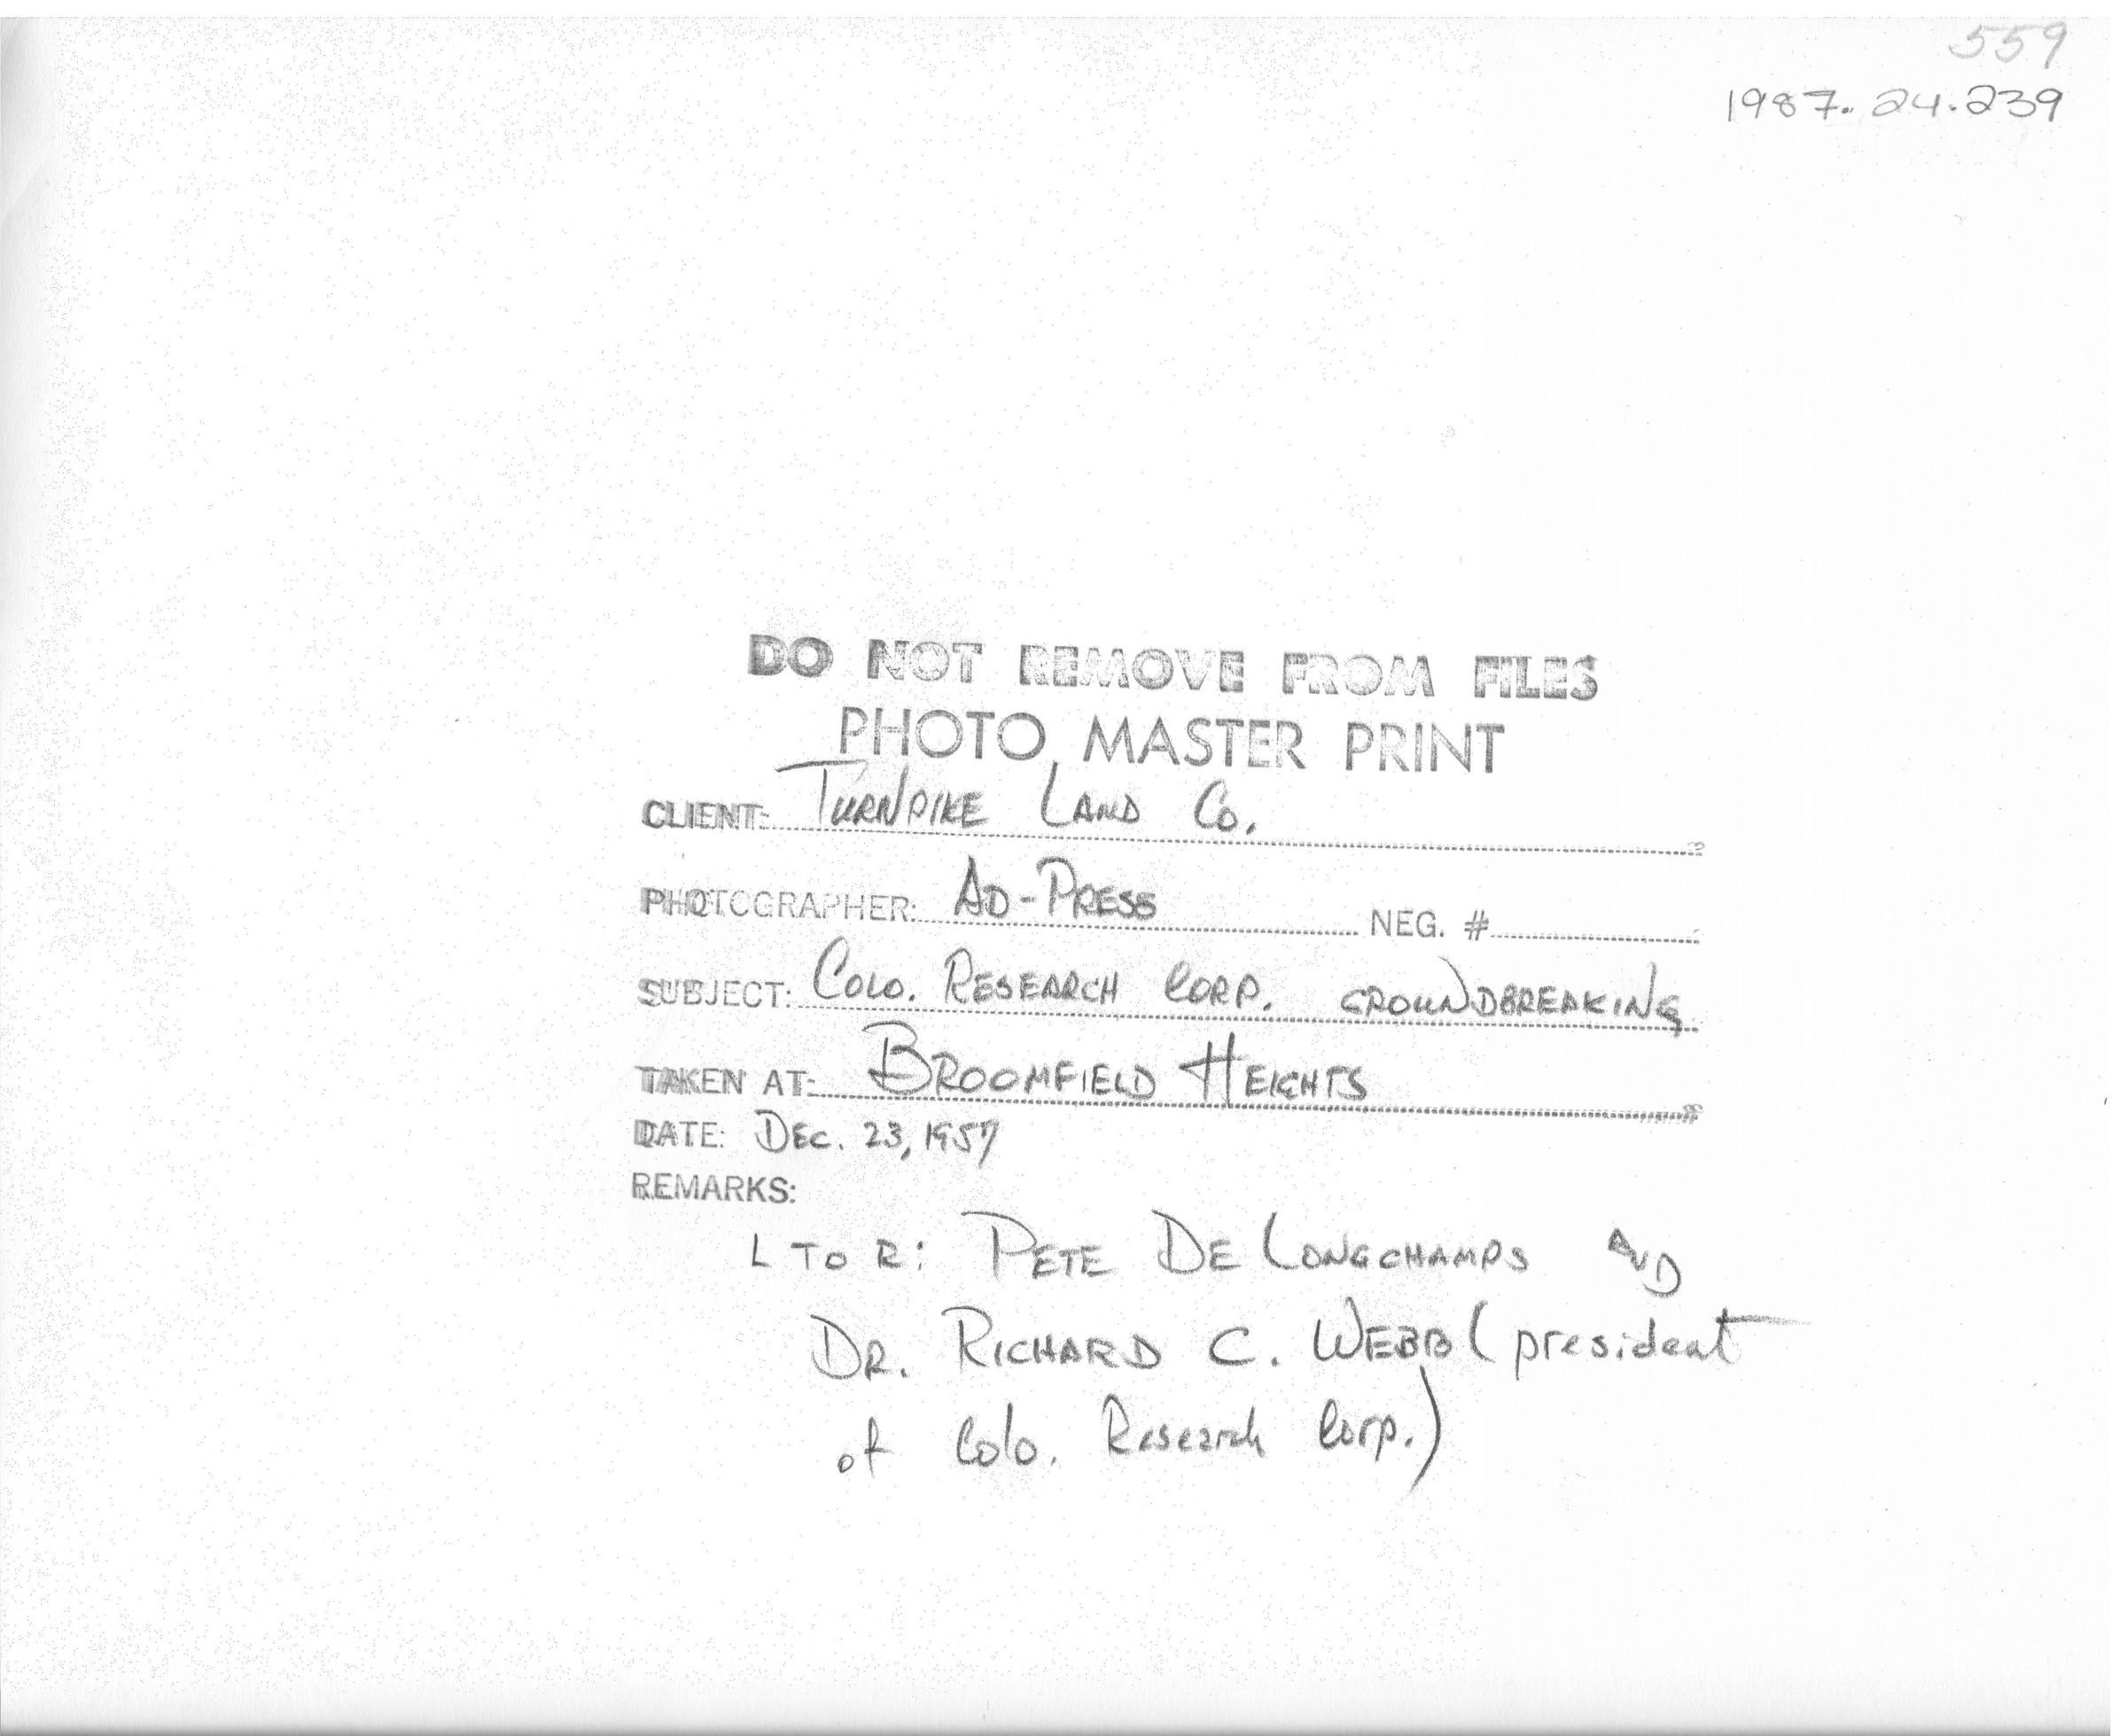 559
1987.24.239
DO NOT REMOVE FROM FILES
PHOTO MASTER PRINT
CLIENT: TURNPIKE LAND CO.
PHOTOGRAPHER: AD-PRESS NEG. #
SUBJECT: COLO. RESEARCH CORP. GROUNDBREAKING
TAKEN AT: BROOMFIELD HEIGHTS
DATE: DEC. 23, 1957
REMARKS:
L TO R: PETE DE LONGCHAMPS AND
DR. RICHARD C. WEBB (president
of Colo. Research Corp.)